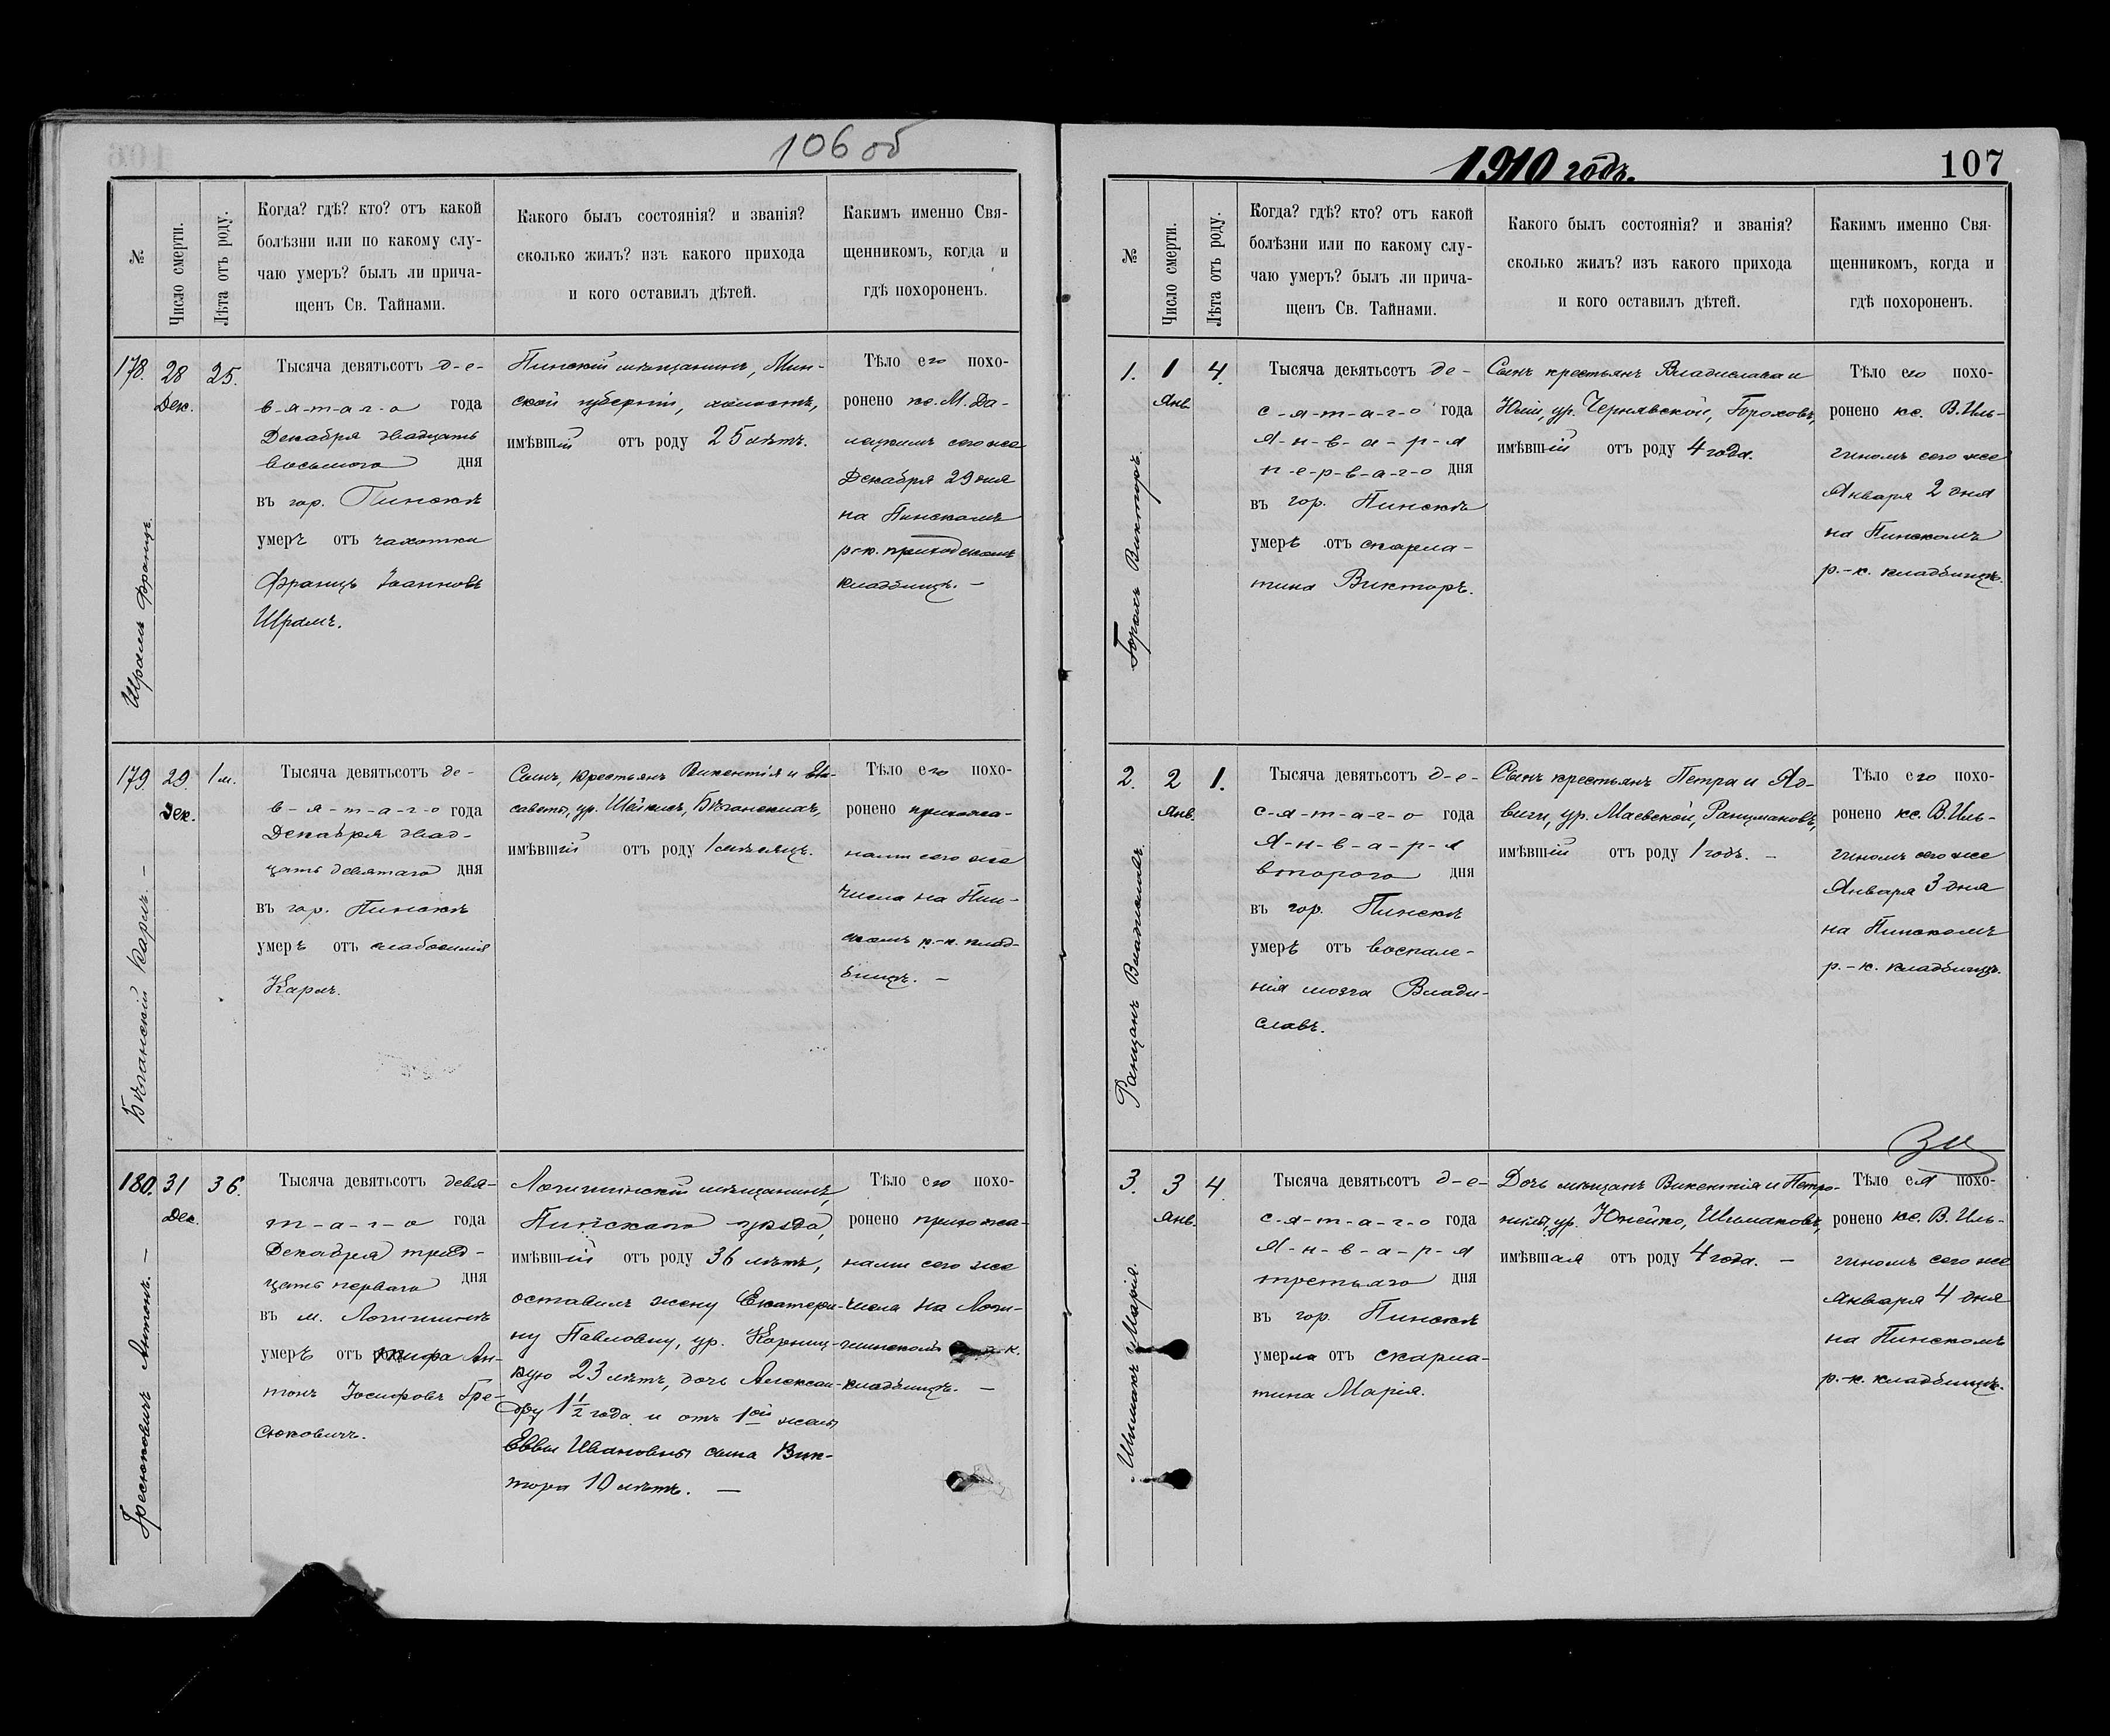 106 об
№
Число смерти.
Лѣта отъ роду.
Когда? гдѣ? кто? отъ какой
болѣзни или по какому слу-
чаю умеръ? былъ ли прича-
щенъ Св. Тайнами.
Какого былъ состоянія? и званія?
сколько жилъ? изъ какого прихода
и кого оставилъ дѣтей.
Каким именно Свя-
щенникомъ, когда и
гдѣ похороненъ.
178.
Шрамъ Францъ.
28
Дек.
25.
Тысяча девятьсотъ д-е-
в-я-т-а-г-о года
Декабря двадцать
восьмого дня
въ гор. Пинскѣ
умеръ отъ чахотки
Францъ Іоанновъ
Шрамъ.
Пинскій мѣщанинъ, Мин-
ской губерніи, холостъ,
имѣвшій отъ роду 25 лѣтъ.
Тѣло его похо-
ронено кс. М. Да-
лецкимъ сего же
Декабря 29 дня
на Пинскомъ
р.-к. приходскомъ
кладбищѣ. —
179.
Бѣганскій Карлъ. —
29.
Дек.
1 м.
Тысяча девятьсотъ де-
в-я-т-а-г-о года
Декабря двад-
цать девятаго дня
въ гор. Пинскѣ
умеръ отъ слабосилія
Карлъ.
Сынъ, крестьянъ Викентія и Ели-
саветы, ур. Шейкисъ, Бѣганскихъ,
имѣвшій отъ роду 1 мѣсяцъ.
Тѣло его похо-
ронено прихожа-
нами сего же
числа на Пин-
скомъ р.-к. клад-
бищѣ. —
180.
Гресюковичъ Антонъ. —
31
Дек.
36.
Тысяча девятьсотъ девя-
т-а-г-о года
Декабря трид-
цать перваго дня
въ м. Логишинѣ
умеръ отъ тифа Ан-
тонъ Іосифовъ Гре-
сюковичъ.
Логишинскій мѣщанинъ,
Пинскаго уѣзда,
имѣвшій отъ роду 36 лѣтъ,
оставилъ жену Екатери-
ну Павловну, ур. Корниц-
кую 23 лѣтъ, дочь Алексан-
дру 1½ года и отъ 1ой жены
Еввы Ивановны сына Вик-
тора 10 лѣтъ. —
Тѣло его похо-
ронено прихожа-
нами сего же
числа на Логи-
шинскомъ к.
кладбищѣ. —
1910 годъ.
107
№
Число смерти.
Лѣта отъ роду.
Когда? гдѣ? кто? отъ какой
болѣзни или по какому слу-
чаю умеръ? былъ ли прича-
щенъ Св. Тайнами.
Какого былъ состоянія? и званія?
сколько жилъ? изъ какого прихода
и кого оставилъ дѣтей.
Каким именно Свя-
щенникомъ, когда и
гдѣ похороненъ.
1.
Горохъ Викторъ.
1
Янв.
4.
Тысяча девятьсотъ де-
с-я-т-а-г-о года
Я-н-в-а-р-я
п-е-р-в-а-г-о дня
въ гор. Пинскѣ
умеръ отъ скарла-
тина Викторъ.
Сынъ крестьянъ Владислава и
Юліи, ур. Чернявской, Гороховъ,
имѣвшій отъ роду 4 года.
Тѣло его похо-
ронено кс. В. Иль-
гиномъ сего же
Января 2 дня
на Пинскомъ
р.-к. кладбищѣ.
2.
Ранцманъ Владиславъ.
2
Янв.
1.
Тысяча девятьсотъ д-е-
с-я-т-а-г-о года
Я-н-в-а-р-я
второго дня
въ гор. Пинскѣ
умеръ отъ воспале-
нія мозга Влади-
славъ.
Сынъ крестьянъ Петра и Яд-
виги, ур. Маевской, Ранцмановъ,
имѣвшій отъ роду 1 годъ. —
Тѣло его похо-
ронено кс. В. Иль-
гиномъ сего же
Января 3 дня
на Пинскомъ
р.-к. кладбищѣ.
3.
Шиманъ Марія.
3
Янв.
4.
Тысяча девятьсотъ д-е-
с-я-т-а-г-о года
Я-н-в-а-р-я
третьяго дня
въ гор. Пинскѣ
умерла отъ скарла-
тина Марія.
Дочь мѣщанъ Викентія и Петро-
нелы, ур. Юнейко, Шимановъ,
имѣвшая отъ роду 4 года. —
Тѣло ея похо-
ронено кс. В. Иль-
гиномъ сего же
Января 4 дня
на Пинскомъ
р.-к. кладбищѣ.